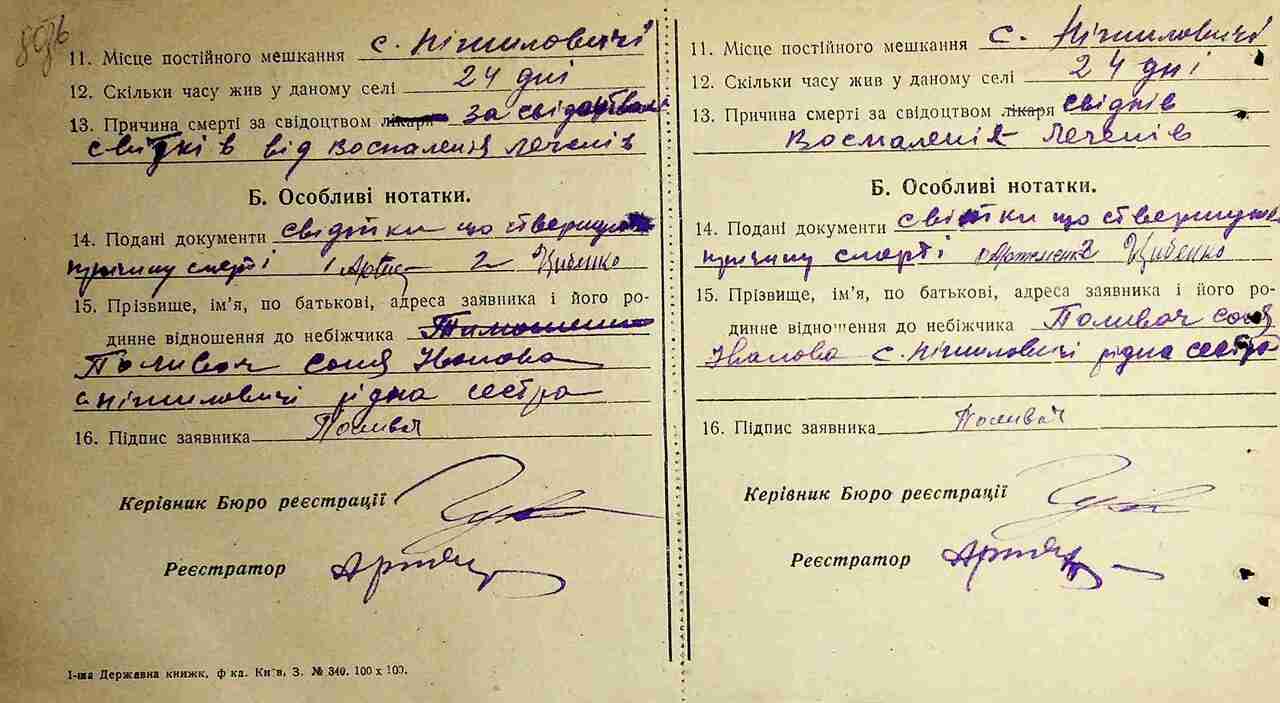 11. Місце постійного мешкання с. Ніжиловичі
12. Скільки часу жив у даному селі 24 дні
13. Причина смерті за свідоцтвом лікаря за свідоцтвам
свідків від Воспаленія Леченів
Б. Особливі нотатки.
14. Подані документи свідтки що ствержують
причину смерті 1 2 Цибенко
15. Прізвище, ім’я, по батькові, адреса заявника і його ро-
динне відношення до небіжчика
Поливач Соня Іванова
с Ніжиловичі рідна сестра
16. Підпис заявника Полива
Керівник Бюро реєстрації
Реєстратор
1-ша Державна книжк, ф ка. Київ, З. № 340. 100 x 100.
11. Місце постійного мешкання с. Ніжиловичі
12. Скільки часу жив у даному селі 24 дні
13. Причина смерті за свідоцтвом лікаря свідків
Воспаленія Леченів
Б. Особливі нотатки.
14. Подані документи свідтки що ствержують
причину смерті 2 Цибенко
15. Прізвище, ім’я, по батькові, адреса заявника і його ро-
динне відношення до небіжчика Поливач Соня
Іванова с. Ніжиловичі рідна сестра
16. Підпис заявника Поливач
Керівник Бюро реєстрації
Реєстратор